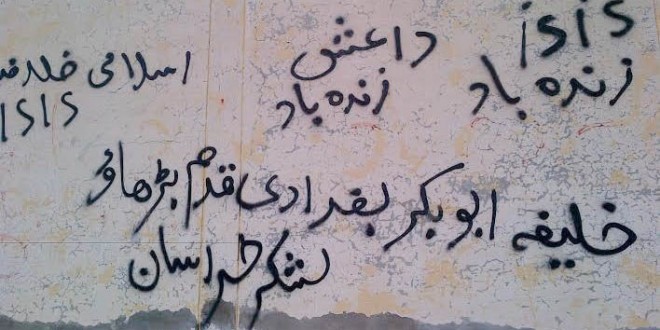 ISIS
زندہ باد
داعش
زندہ باد
اسلامی خلافت
ISIS
خلیفہ ابوبکر بغدادی قدم بڑھاؤ
لشکر خراسان